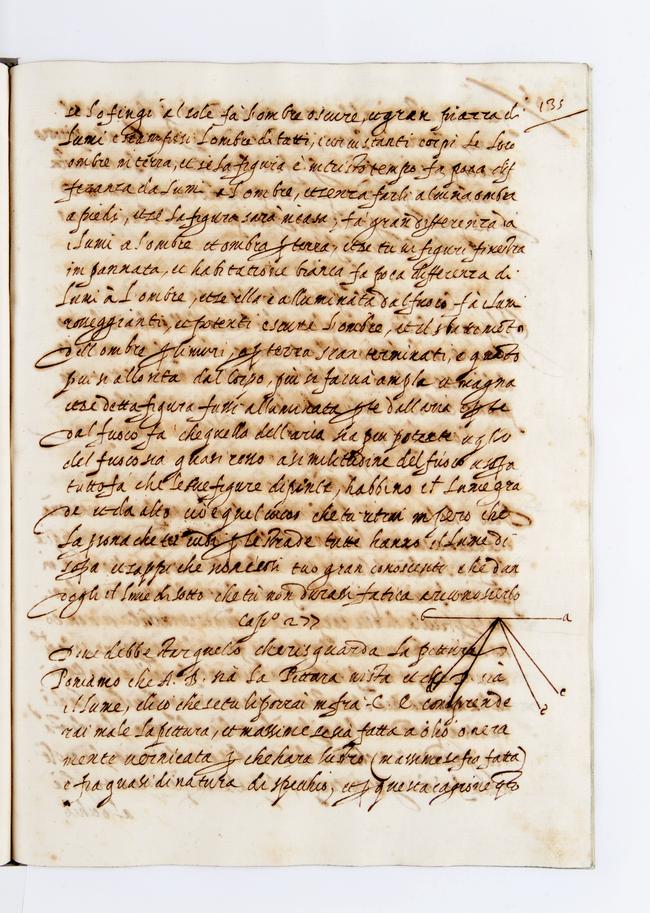 135
se lo fingi al sole fa l'ombre oscure, et gran piazza di
lumi e stampissi l'ombre di tutti, i circustanti corpi le loro
ombre in terra, et se la figura è in tristo tempo fa poca dif
ferenza da lumi a l'ombre, et senza farli alcuna ombra
a piedi, et se la figura sarà in casa, fa gran differenza da
i lumi a l'ombre et ombra p terra, et se tu vi figuri finestra
impannata, et habitatione bianca fa poca differenza di
lumi à l'ombre, et se ella e alluminata dal fuoco fa i lumi
rosseggianti, et potenti e scure l'ombre, et il sbattimento
dell ombre p li muri, o p terra sian terminati, e quanto
piu si allonta dal corpo, piu si faccia ampla et magna
et se detta figura fussi alluminata pte dall aria et pte
dal fuoco fa che quello dell aria sia piu potente e q̃llo
del fuoco sia quasi rosso a similitudine del fuoco, e sopra
tutto fa che le tue figure dipinte, habbino il lume gra
de et da alto cioè quel vivo che tu ritrai impero che
la persona che tu vedi p le strade tutte hanno il lume di
sopra et sappi che non è così tuo gran conoscente che dan
dogli il lume di sotto che tu non durassi fatica a riconoscerlo
Cap.º 277
Dove debbe star quello che risguarda la pittura
Poniamo che A. B. sia la Pittura vista et che D. sia
il lume, dico che se tu ti porrai infra C. E. comprende
rai male la pittura, et massime se sia fatta a olio o vera
mente vernicata p che hara lustro (massime se fia fatta)
e fia quasi di natura di specchio, et p questa cagione q̃to
b
a
c
e